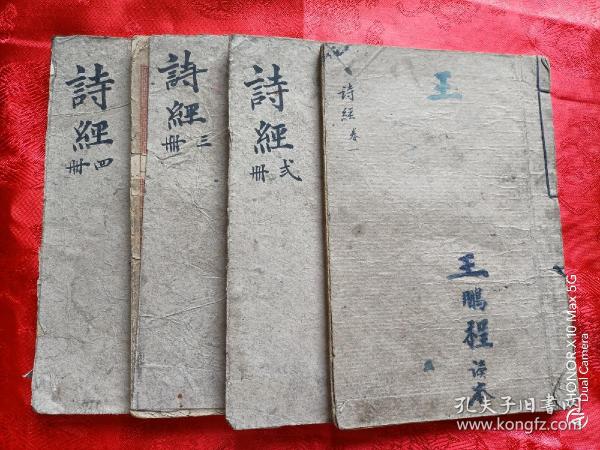 詩經
四冊
詩經
三冊
詩經
弍冊
詩經 卷
王
王鵬程
HONOR X10 Max 5G
Dual Camera
孔夫子旧书网
www.kongfz.com